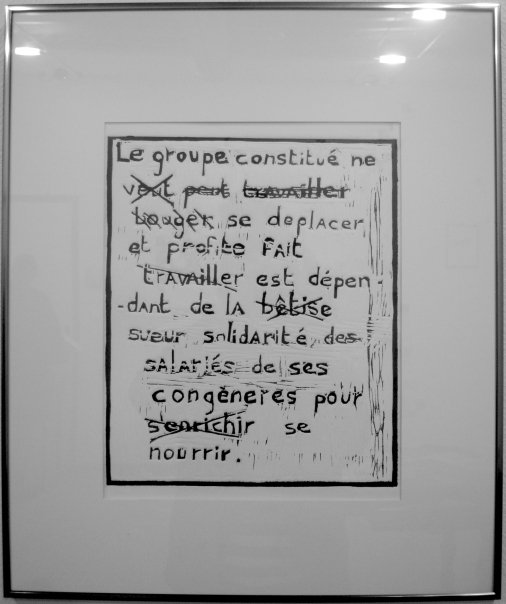 Le groupe constitué ne
veut peut travailler
bouger se deplacer
et profite FAIT
trAVAiller est dépen-
-dAnt de lA bêtise
sueur solidArité des
sAlAriés de ses
congèneres pour
s'enrichir se
nourrir.